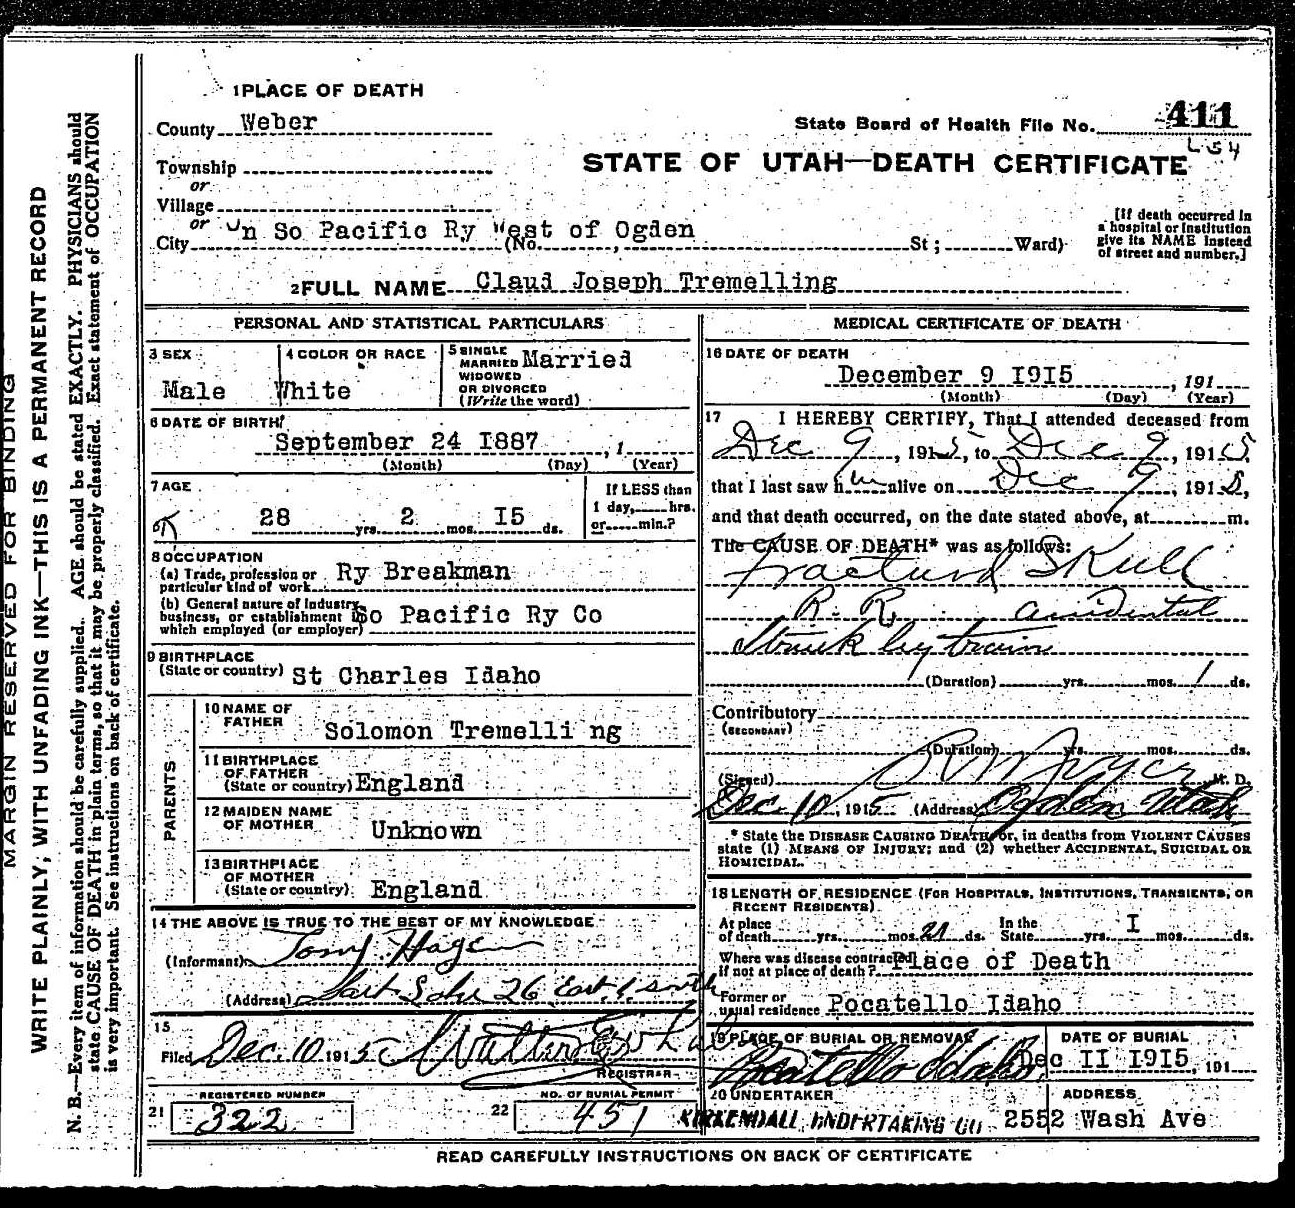 1 PLACE OF DEATH
County Weber
State Board of Health File No. 411
L 54
Township
or
STATE OF UTAH—DEATH CERTIFICATE
Village
or
City On So Pacific Ry West of Ogden (No. , St ; Ward)
[If death occurred in a hospital or institution give its NAME instead of street and number.]
2 FULL NAME Claud Joseph Tremelling
PERSONAL AND STATISTICAL PARTICULARS
3 SEX Male
4 COLOR OR RACE White
5 SINGLE MARRIED WIDOWED OR DIVORCED (Write the word) Married
6 DATE OF BIRTH
September 24 I887 , 1
(Month) (Day) (Year)
7 AGE
28 yrs. 2 mos. I5 ds.
If LESS than 1 day, hrs. or min.?
8 OCCUPATION
(a) Trade, profession or particular kind of work Ry Breakman
(b) General nature of Industry, business, or establishment in which employed (or employer) So Pacific Ry Co
9 BIRTHPLACE
(State or country) St Charles Idaho
PARENTS
10 NAME OF FATHER Solomon Tremelli ng
11 BIRTHPLACE OF FATHER (State or country) England
12 MAIDEN NAME OF MOTHER Unknown
13 BIRTHPLACE OF MOTHER (State or country) England
14 THE ABOVE IS TRUE TO THE BEST OF MY KNOWLEDGE
(Informant) Tony Hagen
(Address) 26 East 1 South
15
Filed Dec. 10 1915 Walter
REGISTRAR
REGISTERED NUMBER
21 322
NO. OF BURIAL PERMIT
22 451
MEDICAL CERTIFICATE OF DEATH
16 DATE OF DEATH
December 9 I9I5 , 191
(Month) (Day) (Year)
17 I HEREBY CERTIFY, That I attended deceased from
Dec 9 , 1915, to Dec 9 , 1915,
that I last saw him alive on Dec 9 , 1915,
and that death occurred, on the date stated above, at m.
The CAUSE OF DEATH* was as follows:
Fractured Skull
R. R. accidental
Struck by train
(Duration) yrs. mos. 1 ds.
Contributory
(SECONDARY)
(Duration) yrs. mos. ds.
(Signed) M. D.
Dec 10, 1915 (Address) Ogden Utah
* State the DISEASE CAUSING DEATH, or, in deaths from VIOLENT CAUSES
state (1) MEANS OF INJURY; and (2) whether ACCIDENTAL, SUICIDAL OR
HOMICIDAL.
18 LENGTH OF RESIDENCE (FOR HOSPITALS, INSTITUTIONS, TRANSIENTS, OR
RECENT RESIDENTS)
At place of death yrs. mos. 21 ds. In the State yrs. I mos. ds.
Where was disease contracted if not at place of death? Place of Death
Former or usual residence Pocatello Idaho
19 PLACE OF BURIAL OR REMOVAL
Pocatello Idaho
DATE OF BURIAL
Dec II I9I5 , 191
20 UNDERTAKER
KIRKENDALL UNDERTAKING CO
ADDRESS
2552 Wash Ave
READ CAREFULLY INSTRUCTIONS ON BACK OF CERTIFICATE
MARGIN RESERVED FOR BINDING
WRITE PLAINLY, WITH UNFADING INK—THIS IS A PERMANENT RECORD
N. B.—Every item of information should be carefully supplied. AGE should be stated EXACTLY. PHYSICIANS should
state CAUSE OF DEATH in plain terms, so that it may be properly classified. Exact statement of OCCUPATION
is very important. See instructions on back of certificate.